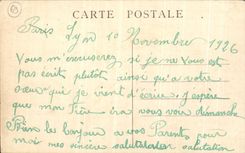 CARTE POSTALE
Paris Lyn 10 Novembre 1926
Vous m'excuserez si je ne vous est
pas écrit plutôt ainsi qu'a votre
sœur que je vient d'écrire J espère
que mon frère ira vous voir dimanche
Bien le bonjour a vos Parents pour
moi mes sincère salutation